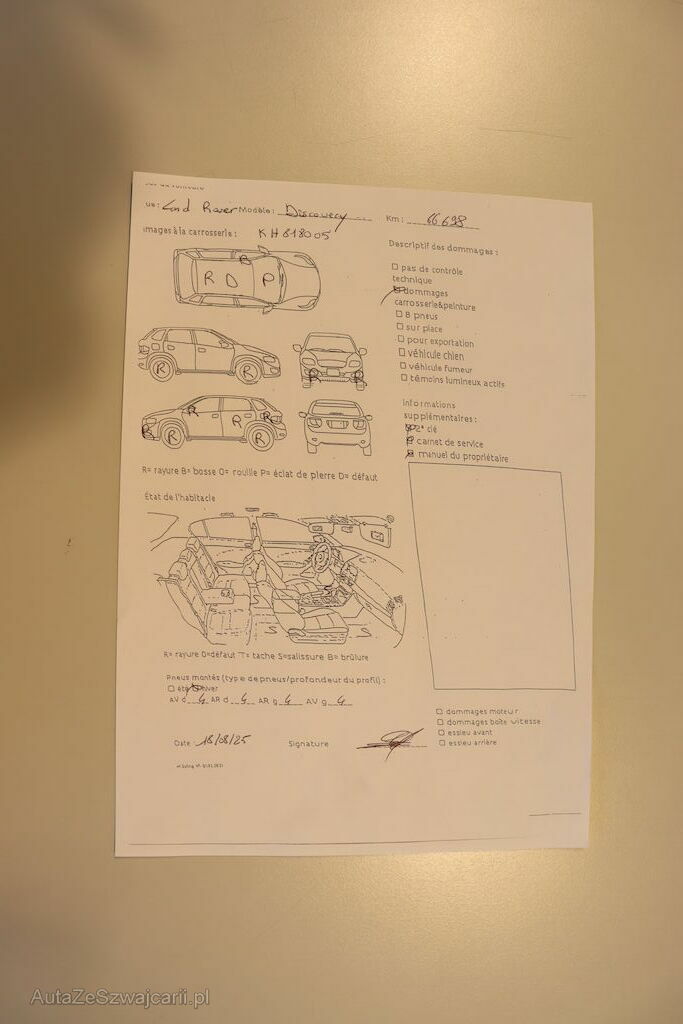 ue: Land Rover Modèle: Discovery Km: 66 698
mages à la carrosserie: KH818005
Descriptif des dommages:
□ pas de contrôle
technique
dommages
carrosserie&peinture
□ 8 pneus
□ sur place
□ pour exportation
□ véhicule chien
□ véhicule fumeur
□ témoins lumineux actifs
R O P
R R
R R
R R R
R R
Informations
supplémentaires:
2ᵉ clé
carnet de service
manuel du propriétaire
R= rayure B= bosse O= rouille P= éclat de pierre D= défaut
État de l'habitacle
S S
R= rayure D=défaut T= tache S=salissure B= brûlure
Pneus montés (type de pneus/profondeur du profil):
□ été hiver
AV d 4 AR d 4 AR g 4 AV g 4
□ dommages moteur
□ dommages boîte vitesse
□ essieu avant
□ essieu arrière
Date 18/08/25 Signature
AutaZeSzwajcarii.pl